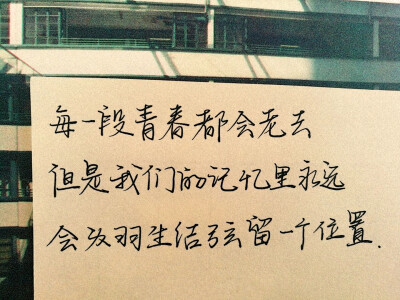 每一段青春都会老去
但是我们的记忆里永远
会为羽生结弦留一个位置.